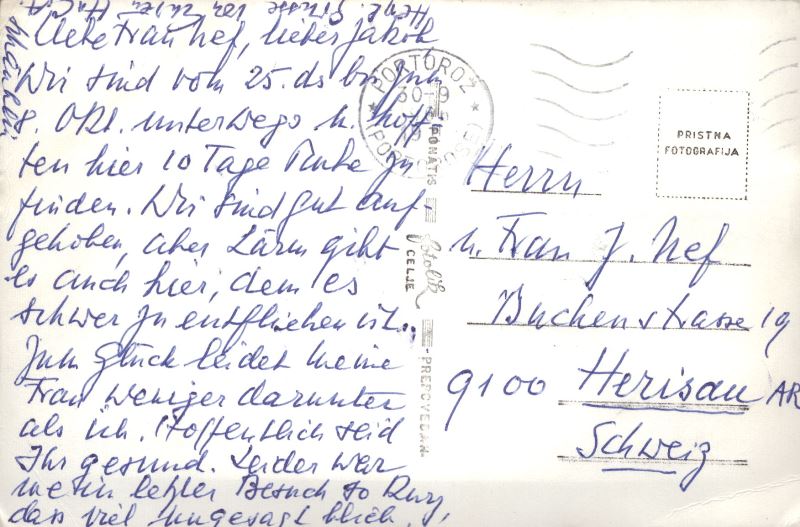 Liebe Frau Nef, lieber Jakob
Wir sind vom 25. ds bis zum
8. Okt. unterwegs u. hoff-
ten hier 10 Tage Ruhe zu
finden. Wir sind gut auf-
gehoben, aber Lärm gibt
es auch hier, dem es
schwer zu entfliehen ist.
Zum Glück leidet meine
Frau weniger darunter
als ich. Hoffentlich seid
Ihr gesund. Leider war
mein letzter Besuch so kurz,
dass viel ungesagt blieb.
Herzl. Grüsse von
PORTOROŽ
30-9
PORTOROSE
PRISTNA
FOTOGRAFIJA
PONATIS
fotolik
CELJE
PREPOVEDAN
Herrn
u. Frau J. Nef
Buchenstrasse 19
9100 Herisau AR
Schweiz